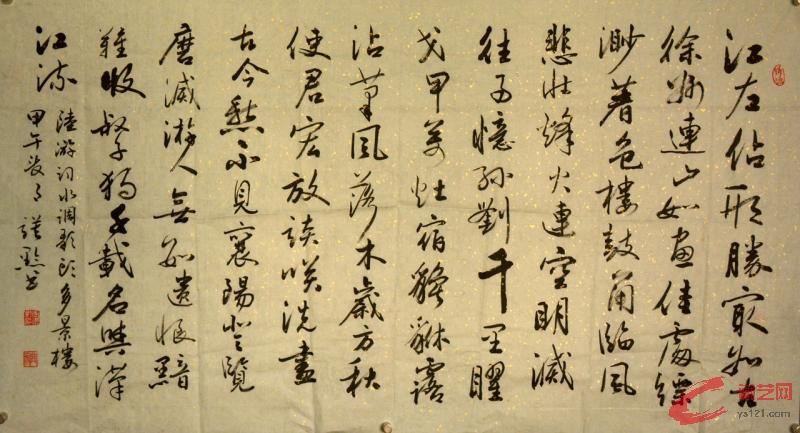 江左佔形勝最如古
徐州連山如畫佳處縹
渺著危樓鼓角臨風
悲壯烽火連空明滅
往事憶孫劉千里曜
戈甲萬灶宿貔貅露
沾草風落木歲方秋
使君宏放談笑洗盡
古今愁不見襄陽登覽
磨滅游人無數遺恨黯
難收叔子獨千載名與漢
江流
陸游詞水調歌頭多景樓
甲午月書
艺网
ys121.com